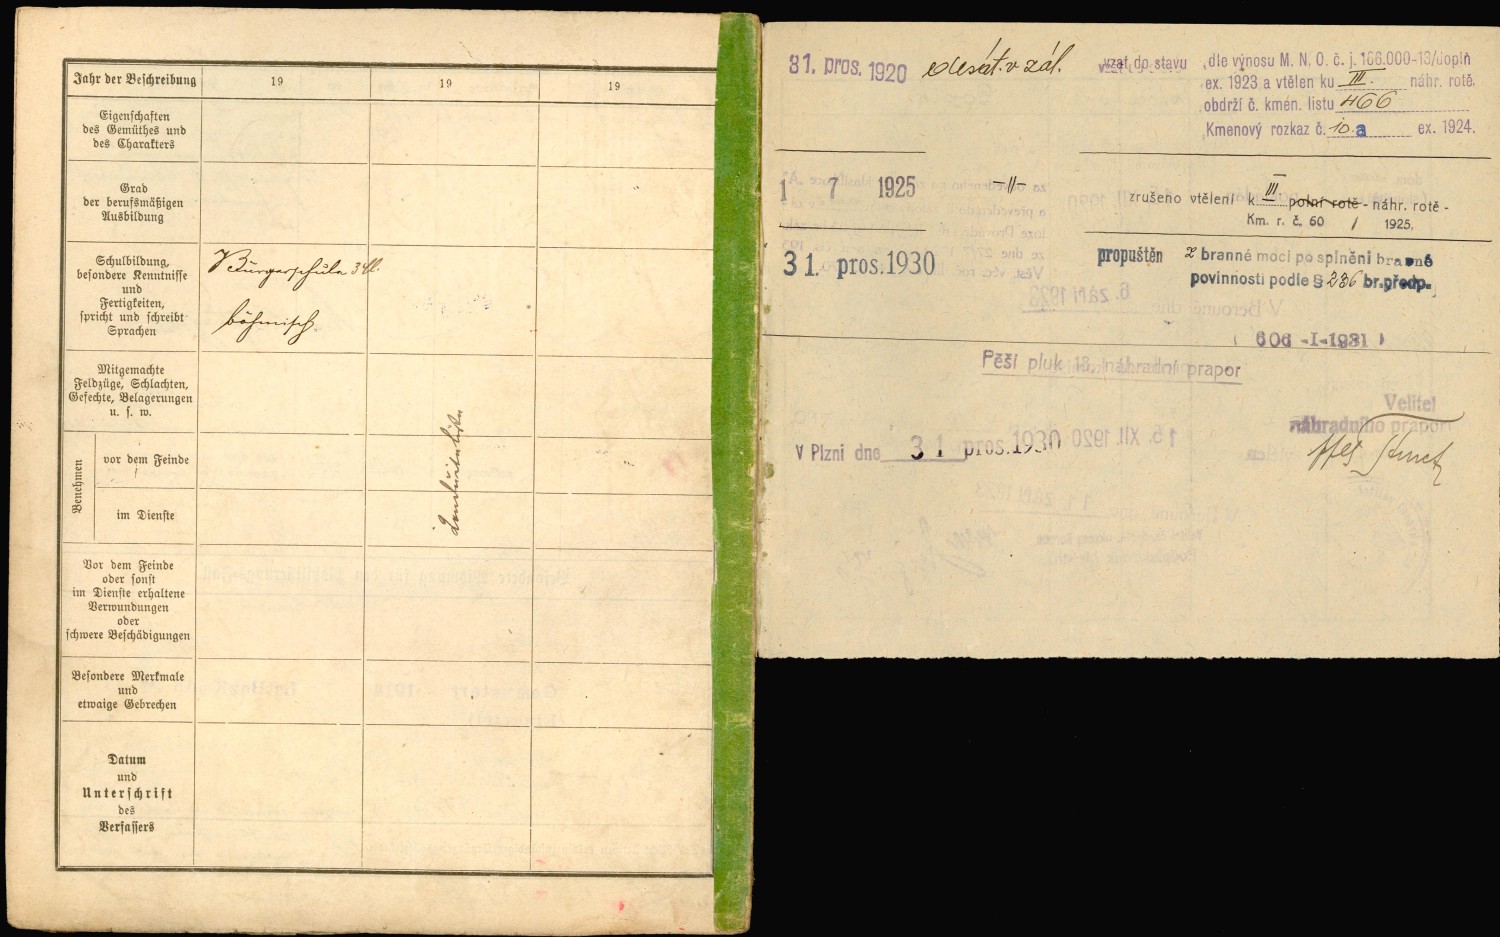 Jahr der Beschreibung
19
19
19
Eigenschaften
des Gemüthes und
des Charakters
Grad
der berufsmäßigen
Ausbildung
Schulbildung,
besondere Kenntnisse
und
Fertigkeiten,
spricht und schreibt
Sprachen
Bürgerschule 3 Kl.
böhmisch
Mitgemachte
Feldzüge, Schlachten,
Gefechte, Belagerungen
u. s. w.
Benehmen
vor dem Feinde
im Dienste
Conduiteliste
Vor dem Feinde
oder sonst
im Dienste erhaltene
Verwundungen
oder
schwere Beschädigungen
Besondere Merkmale
und
etwaige Gebrechen
Datum
und
Unterschrift
des
Verfassers
31. pros. 1920 desát. v zál. vzat do stavu dle výnosu M. N. O. č. j. 166.000-13/doplň
ex. 1923 a vtělen ku III. náhr. rotě,
obdrží č. kmén. listu 466
Kmenový rozkaz č. 10.a ex. 1924.
1 7 1925 -"-
zrušeno vtělení k III polní rotě - náhr. rotě -
Km. r. č. 60 / 1925.
31. pros. 1930 propuštěn z branné moci po splnění branné
povinnosti podle § 236 br. předp.
( 606 -I-1931 )
Pěší pluk 18, náhradní prapor
V Plzni dne 31 pros. 1930
Velitel
náhradního praporu